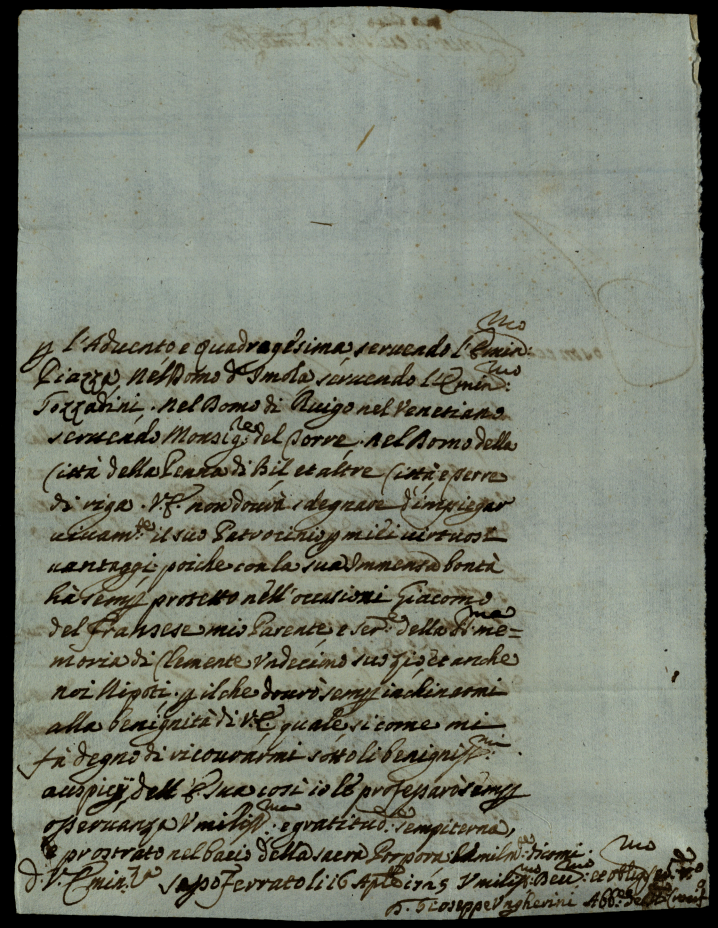 p l'Aduento e Quadragesima seruendo l'Emin:mo
Piazza, Nel Domo d'Imola seruendo l'Emin:mo
Gozzadini. Nel Domo di Ruigo nel Venetiano
seruendo Monsig:re del Torre. Nel Domo della
Città della Penna di Bil, et altre Città e Terre
di riga. V.E. non dourà sdegnare d'impiegar
uiuam:te il suo Patrocinio p mili uirtuosi
uantaggi, poiche con la sua Immensa bontà
hà semp protetto nell'occasioni Giacomo
del Fransese mio Parente, e ser:e della St:ma me=
moria di Clemente Vndecimo suo Zio, et anche
noi Nipoti. p il che dourò semp inchinarmi
alla benignità di V.E. quale, si come mi
fà degno di ricourarmi sotto li beniggnis:mi
auspicij dell'E. Sua, così io le professarò semp
osseruanza Vmiliss:ma e gratitud:e sempiterna,
e prostrato nel bacio della sacra Porpora
di V. Emin:za
Sassoferrato li 16 Aple 1725 Vmiliss:mo Deu:mo et oblig:mo
Giuseppe Vngherini